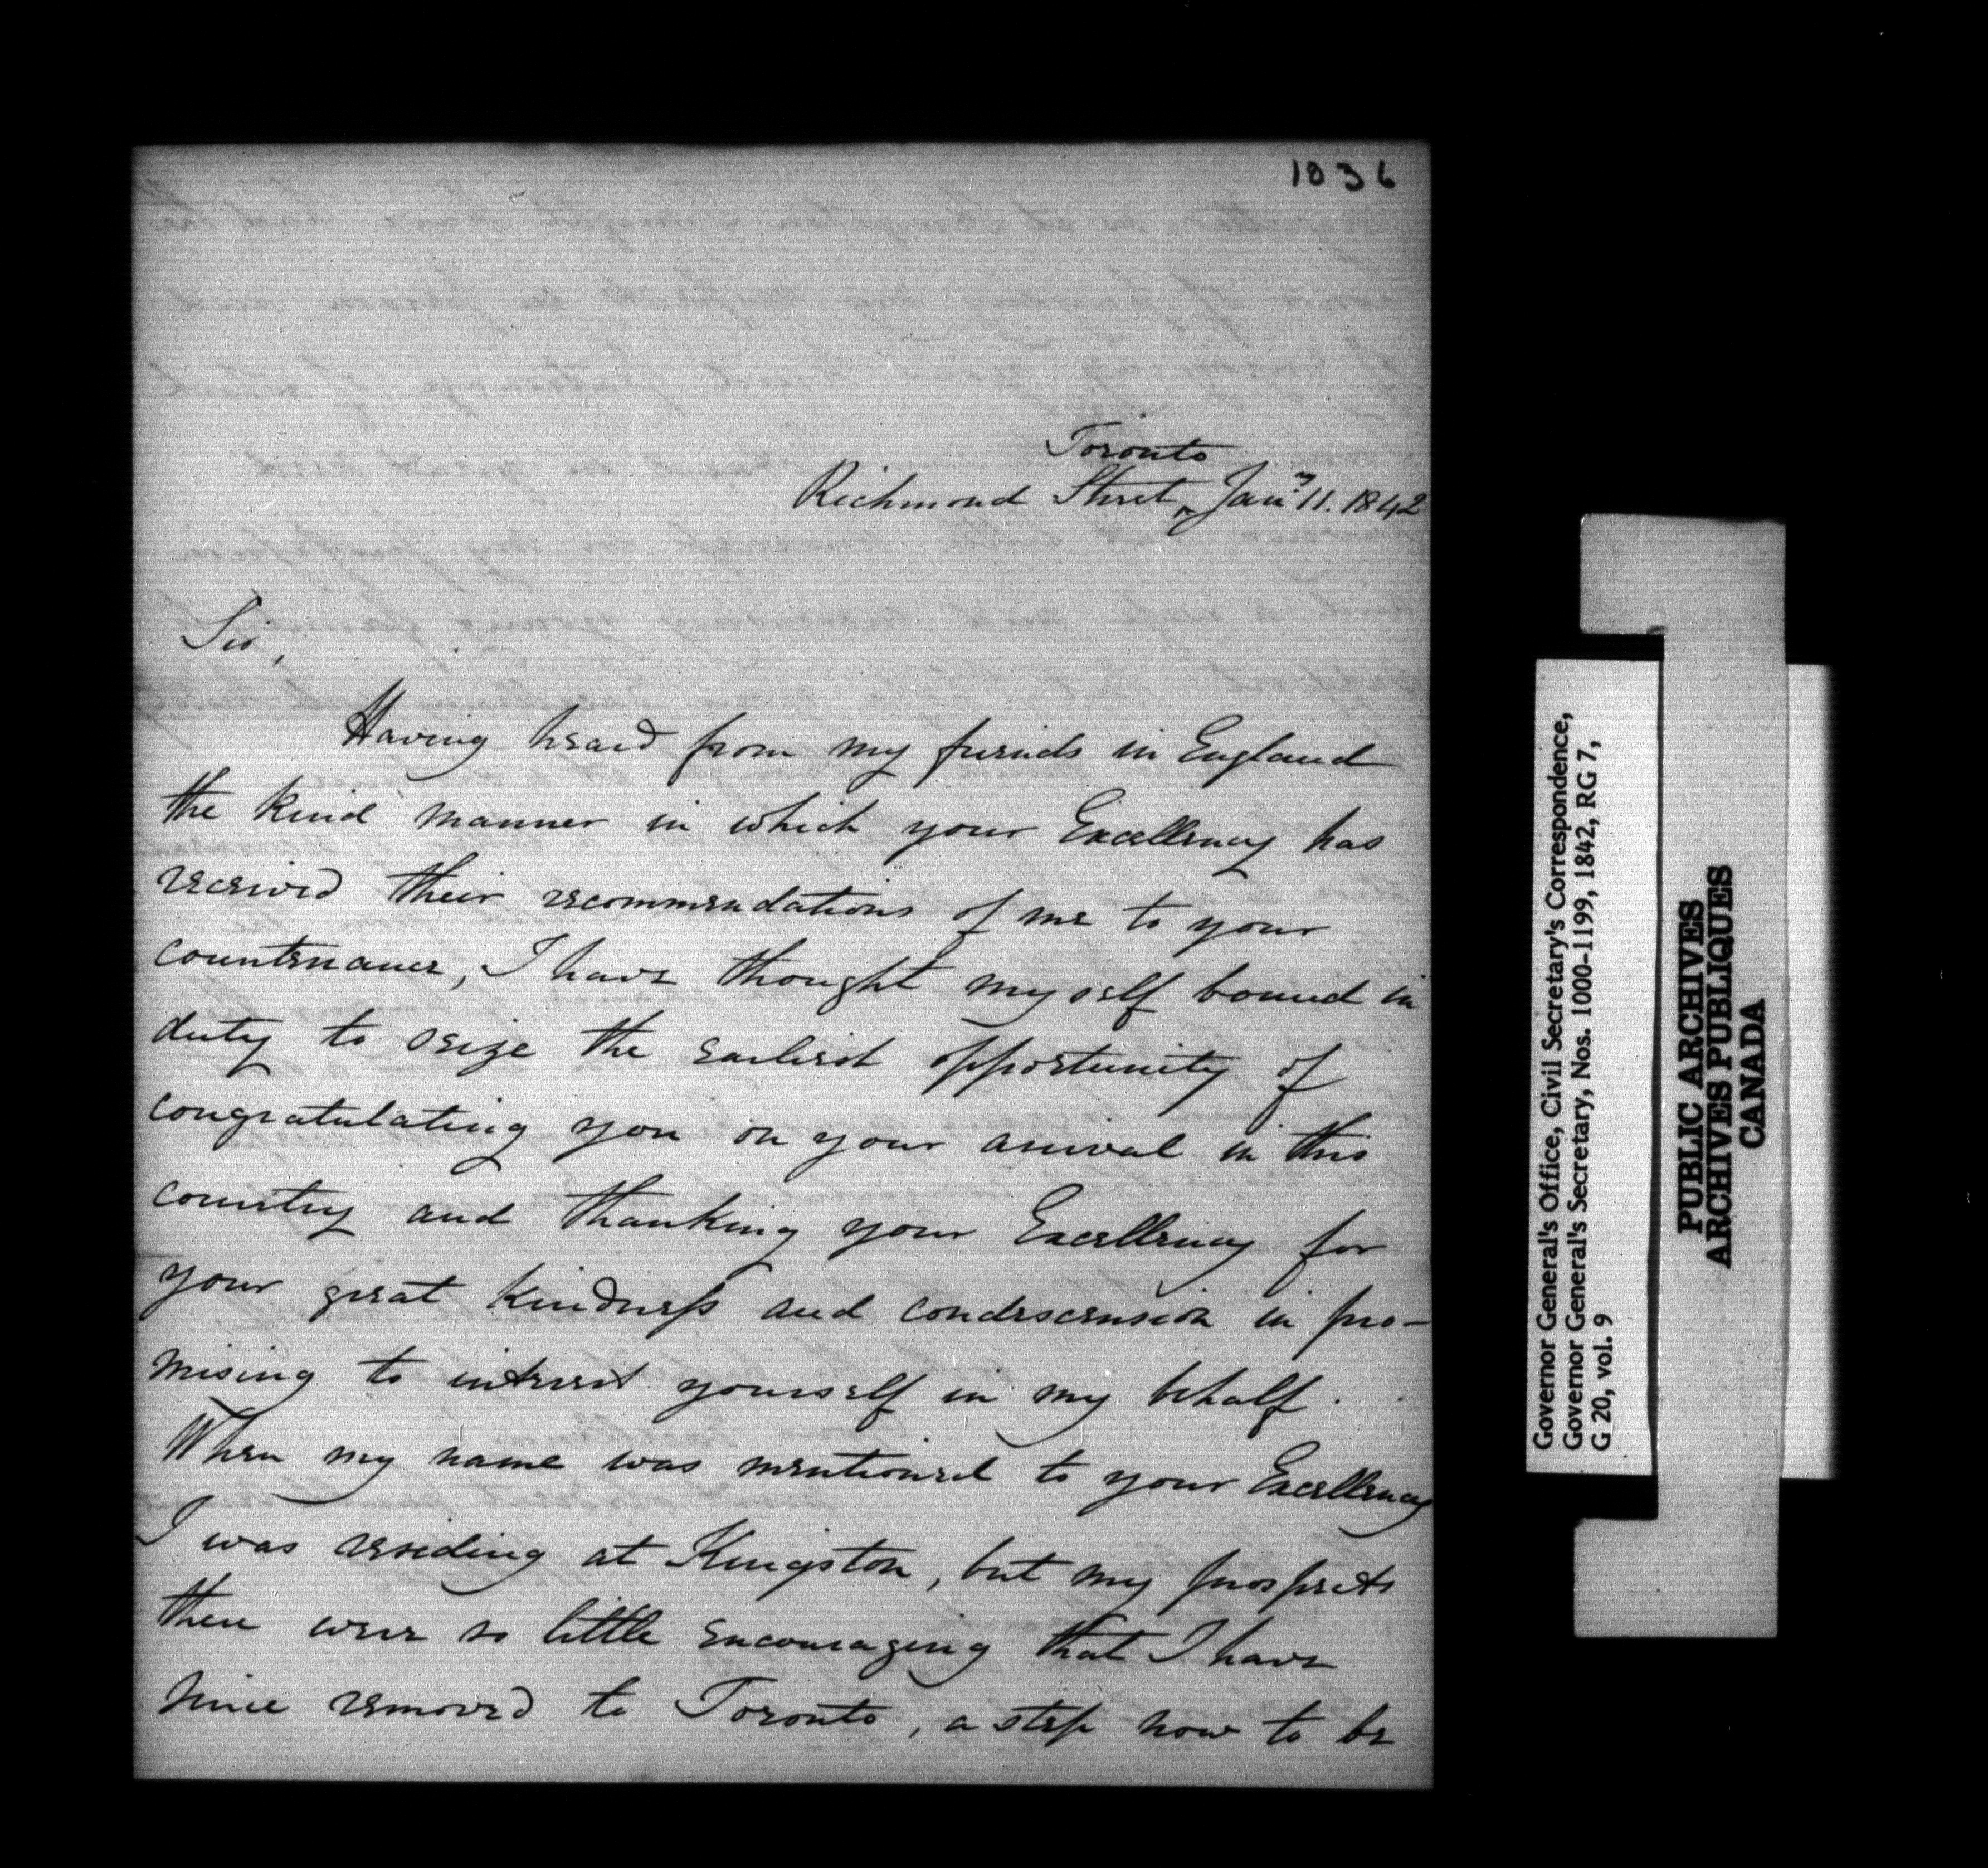 1036
Toronto
Richmond Street, Jany 11. 1842
Sir,
Having heard from my friends in England
the kind manner in which your Excellency has
received their recommendations of me to your
countenance, I have thought myself bound in
duty to seize the earliest opportunity of
congratulating you on your arrival in this
country and thanking your Excellency for
your great kindness and condescension in pro-
mising to interest yourself in my behalf.
When my name was mentioned to your Excellency
I was residing at Kingston, but my prospects
there were so little encouraging that I have
since removed to Toronto, a step now to be
Governor General's Office, Civil Secretary's Correspondence,
Governor General's Secretary, Nos. 1000-1199, 1842, RG 7,
G 20, vol. 9
PUBLIC ARCHIVES
ARCHIVES PUBLIQUES
CANADA